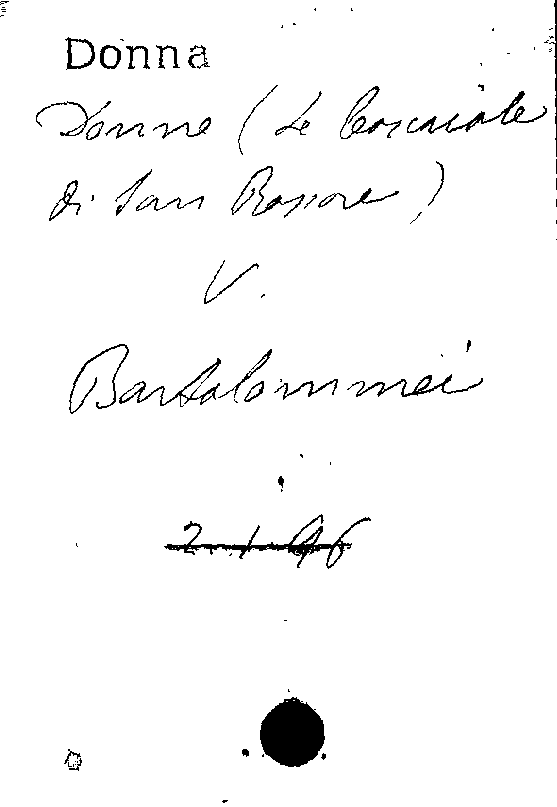 Donna
Donne (Le Cascaiole
di San Rossore)
V.
Bartolommei
2.1.96